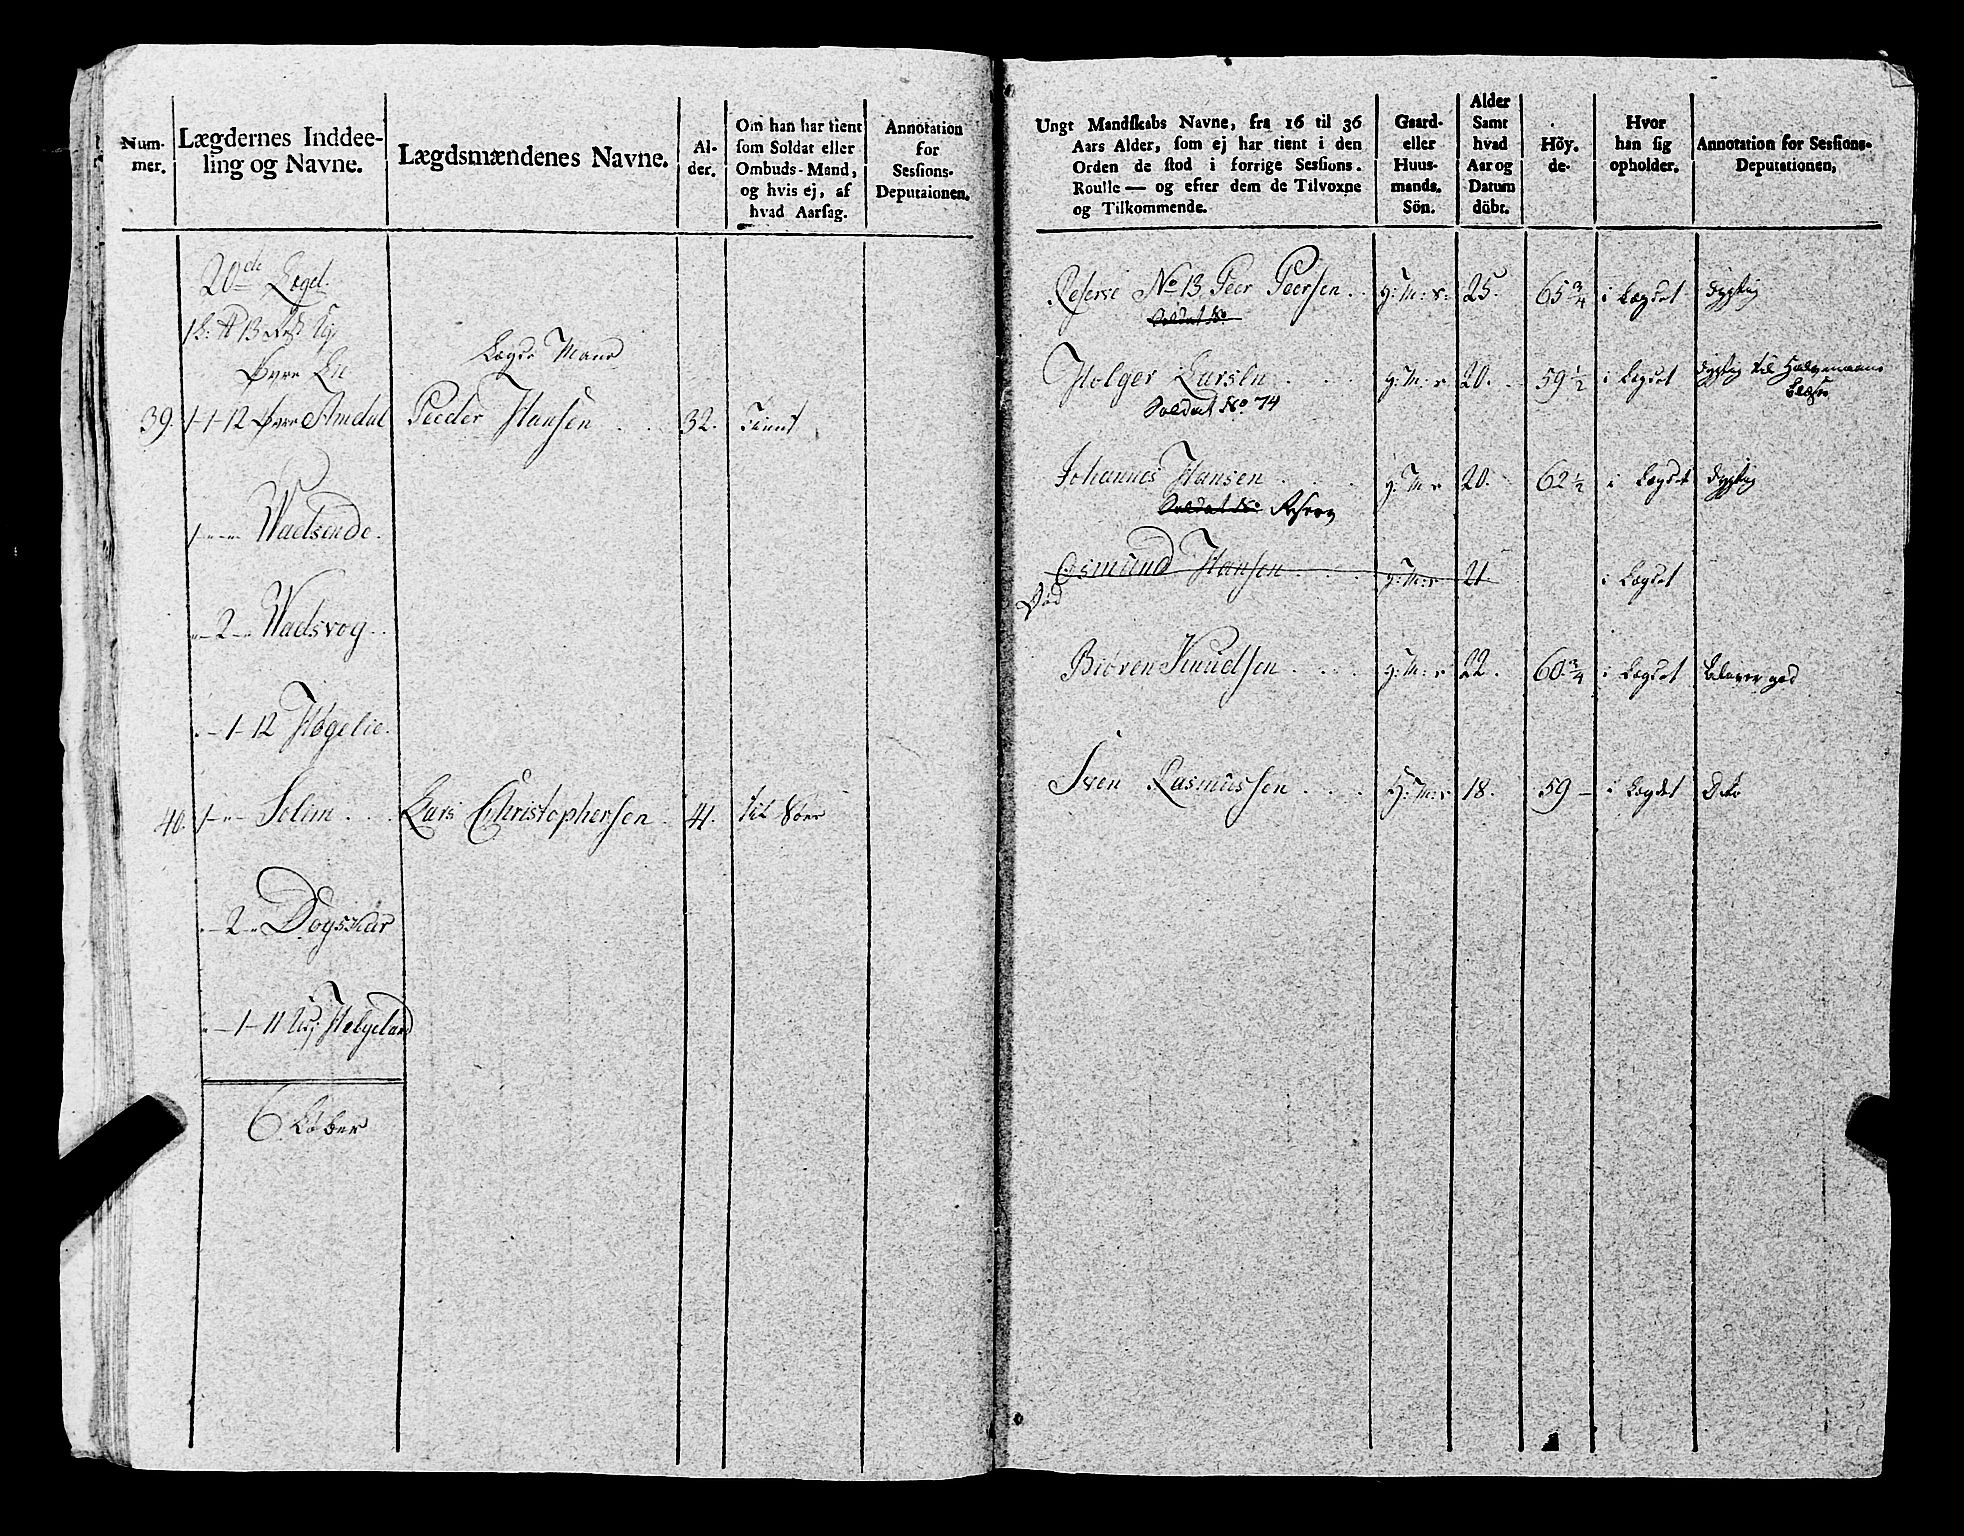 Num-
mer.
Lægdernes Inddee-
ling og Navne.
Lægdsmændenes Navne.
Al-
der.
Om han har tient
som Soldat eller
Ombuds-Mand,
og hvis ej, af
hvad Aarsag.
Annotation
for
Sessions-
Deputaionen.
20de Lægd.
Øvre Lie
Lægds Mand
39. 1-1-12 Øvre Amdal Peeder Hansen 32. Tient
1 Wadsende.
2 Wadsvog
1-12 Høgelie.
40. 1 Solem Lars Christophersen 41. til Søes
2 Dogsskar
1-11 Helgeland
6 Løber
Ungt Mandskabs Navne, fra 16 til 36
Aars Alder, som ej har tient i den
Orden de stod i forrige Sessions.
Roulle — og efter dem de Tilvoxne
og Tilkommende.
Gaard-
eller
Huus-
mands.
Sön.
Alder
Samt
hvad
Aar og
Datum
döbt.
Höy-
de-
Hvor
han sig
opholder.
Annotation for Sessions-
Deputationen,
Reserve No 13 Peer Peersen g: M: s: 25. 65 3/4 i Lægdet dygtig
Soldat No
Holger Larsen g: M: s 20. 59 1/2 i Lægdet dygtig til
Soldat No 74
Johannes Hansen g: M: s 20. 62 1/2 i Lægdet dygtig
Soldat No Reserve
Osmund Hansen g: M: s 21 i Lægdet
Død
Biøren Knudsen g: M: s 22. 60 3/4 i Lægdet
Sven Rasmussen H: M: s 18. 59 — i Lægdet Dito